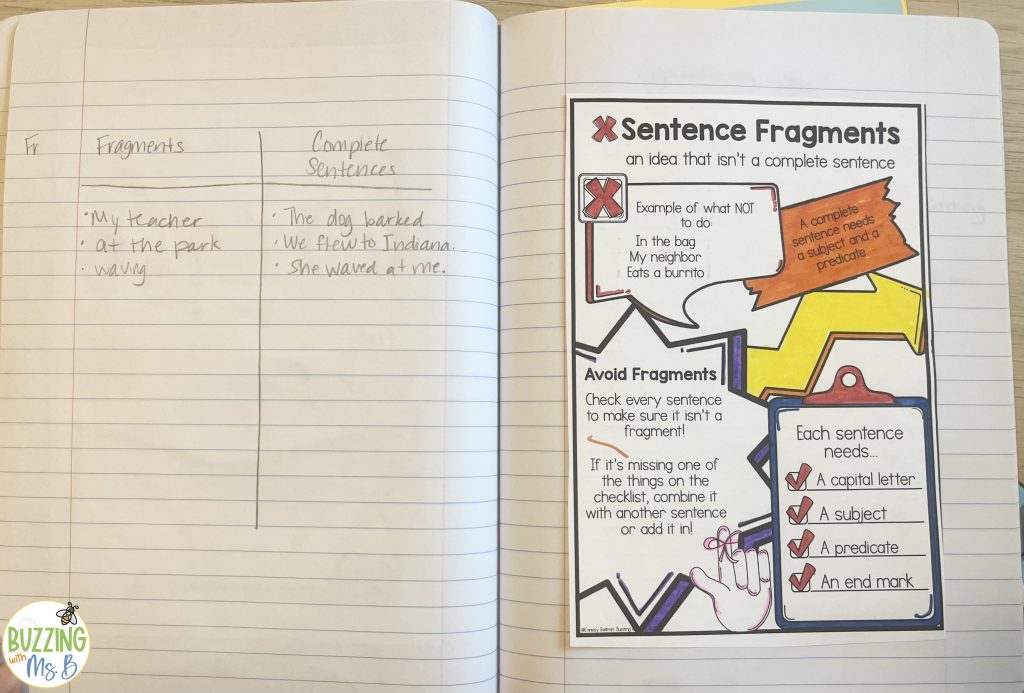 Fr
Fragments
Complete
Sentences
· My teacher
· at the park
· waving
· The dog barked
· We flew to Indiana.
· She waved at me.
Sentence Fragments
an idea that isn't a complete sentence
Example of what NOT
to do:
In the bag
My neighbor
Eats a burrito
A complete
sentence needs
a subject and a
predicate.
Avoid Fragments
Check every sentence
to make sure it isn't a
fragment!
If it's missing one of
the things on the
checklist, combine it
with another sentence
or add it in!
Each sentence
needs...
A capital letter
A subject
A predicate
An end mark
BUZZING
with
Ms. B